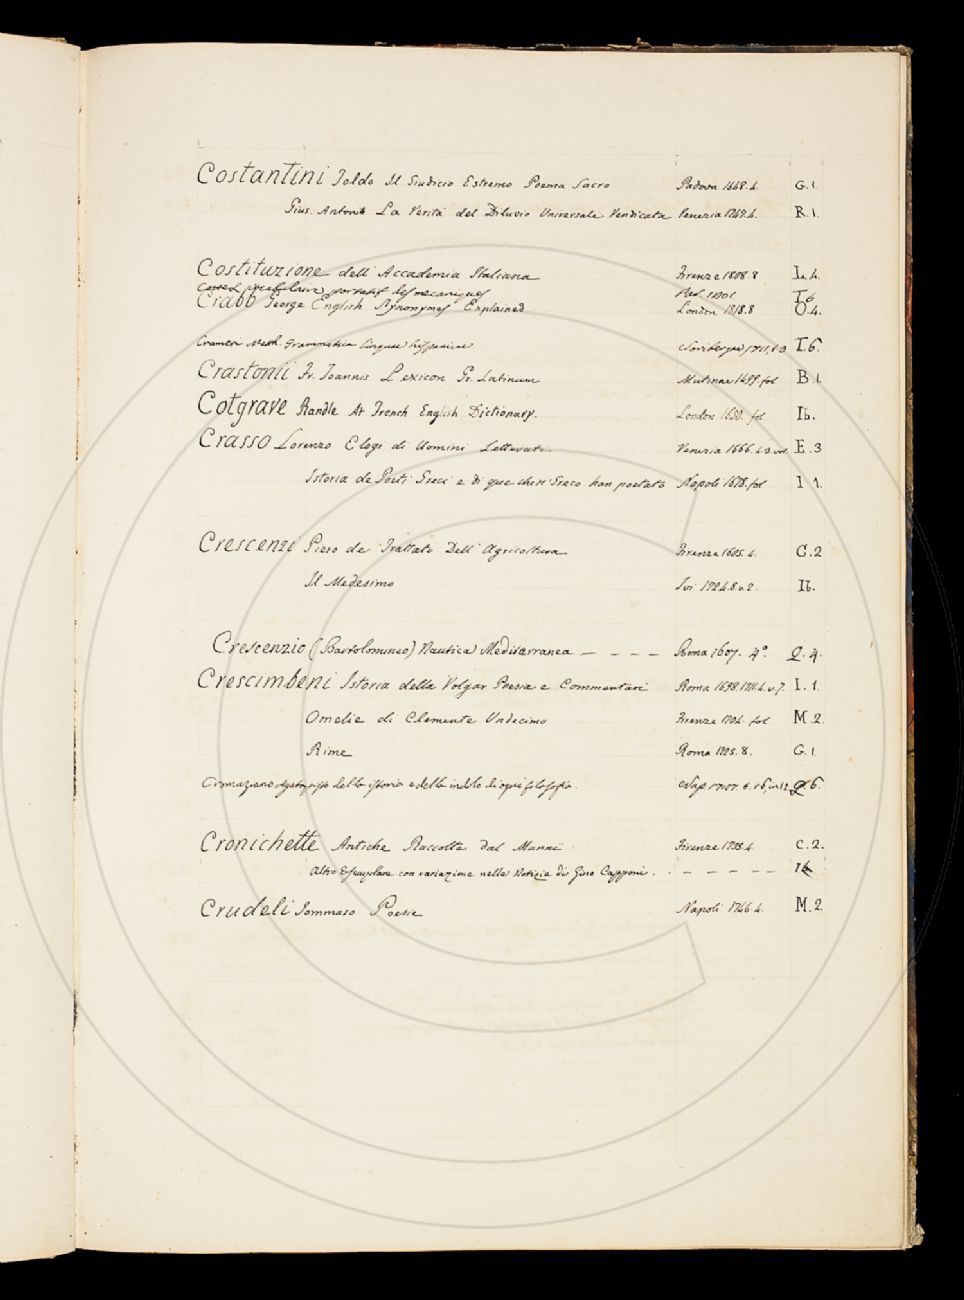 Costantini Toldo Il Giudicio Estremo Poema Sacro Padova 1648.4. G.1.
Gius. Antonio La Verità del Diluvio Universale Vendicata Venezia 1747.4. R.1.
Costituzione dell' Accademia Italiana Firenze 1808.8 L.4.
vocabulaire portatif des mecaniques T.6
Crabb George English Synonymes Explained London 1818.8 O.4.
Crameri Math. Grammatica linguae hispanicae Noribergae 1711, 8 T.6.
Crastonii Fr. Joannis Lexicon Gr. Latinum Mutinae 1499. fol B.1
Cotgrave Randle At French English Dictionary. London 1650. fol Ib.
Crasso Lorenzo Elogi di Uomini Letterati. Venezia 1666.4.2.vol. E.3
Istoria de Poeti Greci e di que che in Greco han poetato Napoli 1678. fol I 1.
Crescenzi Piero de Trattato Dell' Agricoltura Firenze 1605.4. C.2
Il Medesimo Ivi 1724.8.v.2. Ib.
Crescenzio (Bartolommeo) Nautica Mediterranea — — — — Roma 1607. 4°. Q.4.
Crescimbeni Istoria della Volgar Poesia e Commentarj Roma 1698.1711.4.v.7. I.1.
Omelie di Clemente Undecimo Firenze 1704. fol M.2.
Rime Roma 1705.8. G.1.
Cromaziano Agatopisto della istoria e della indole di ogni filosofia. Q.6.
Cronichette Antiche Raccolte dal Manni Firenze 1733.4 C.2.
Altro Esemplare con variazione nelle Notizie di Gino Capponi. - — — — — — — Ib
Crudeli Tommaso Poesie Napoli 1746.4. M.2.